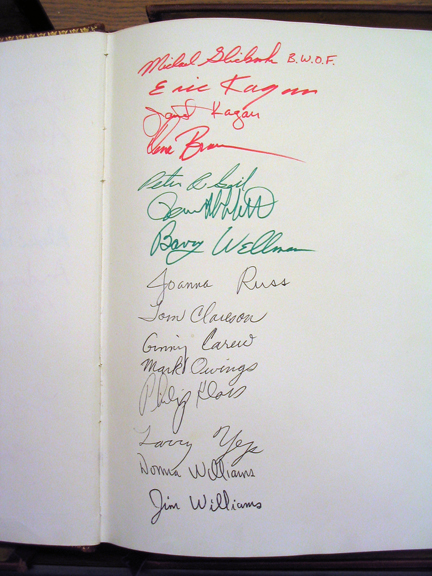 Michael B.W.O.F.
Eric Kagan
Janet Kagan
Peter
Barry Wellman
Joanna Russ
Tom Clareson
Ginny Carew
Mark Owings
Philip Klass
Larry Yep
Donna Williams
Jim Williams